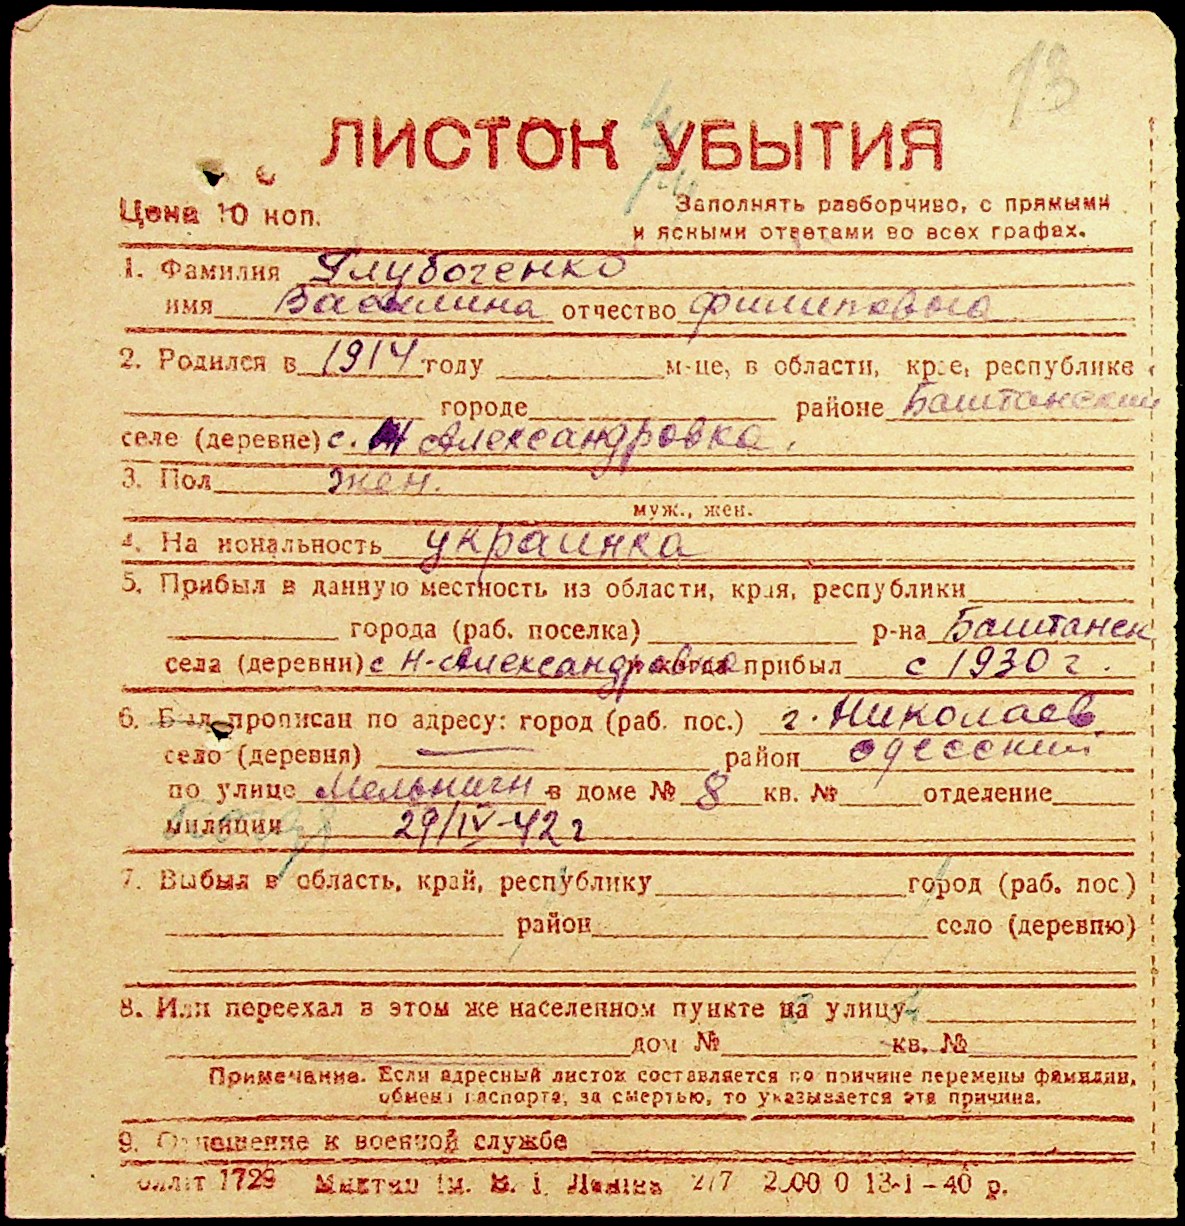 13
ЛИСТОК УБЫТИЯ
Цена 10 коп.
Заполнять разборчиво, с прямыми
и ясными ответами во всех графах.
1. Фамилия Глубоченко
имя Василина отчество Филиповна
2. Родился в 1914 году м-це, в области, крае, республике
городе районе Баштанский
селе (деревне) с. Н Александровка.
3. Пол жен.
муж., жен.
4. Национальность украинка
5. Прибыл в данную местность из области, края, республики
города (раб. поселка) р-на Баштанск
села (деревни) с Н-Александровка и когда прибыл с 1930 г.
6. Был прописан по адресу: город (раб. пос.) г. Николаев
село (деревня) — район одесский
по улице в доме № 8 кв. № отделение
милиции 29/IV-42 г
7. Выбыл в область, край, республику город (раб. пос.)
район село (деревню)
8. Или переехал в этом же населенном пункте на улицу
дом № кв. №
Примечание. Если адресный листок составляется по причине перемены фамилии,
обмена паспорта, за смертью, то указывается эта причина.
9. Отношение к военной службе
1729 ім. В. І. Леніна 277 13-I-40 р.